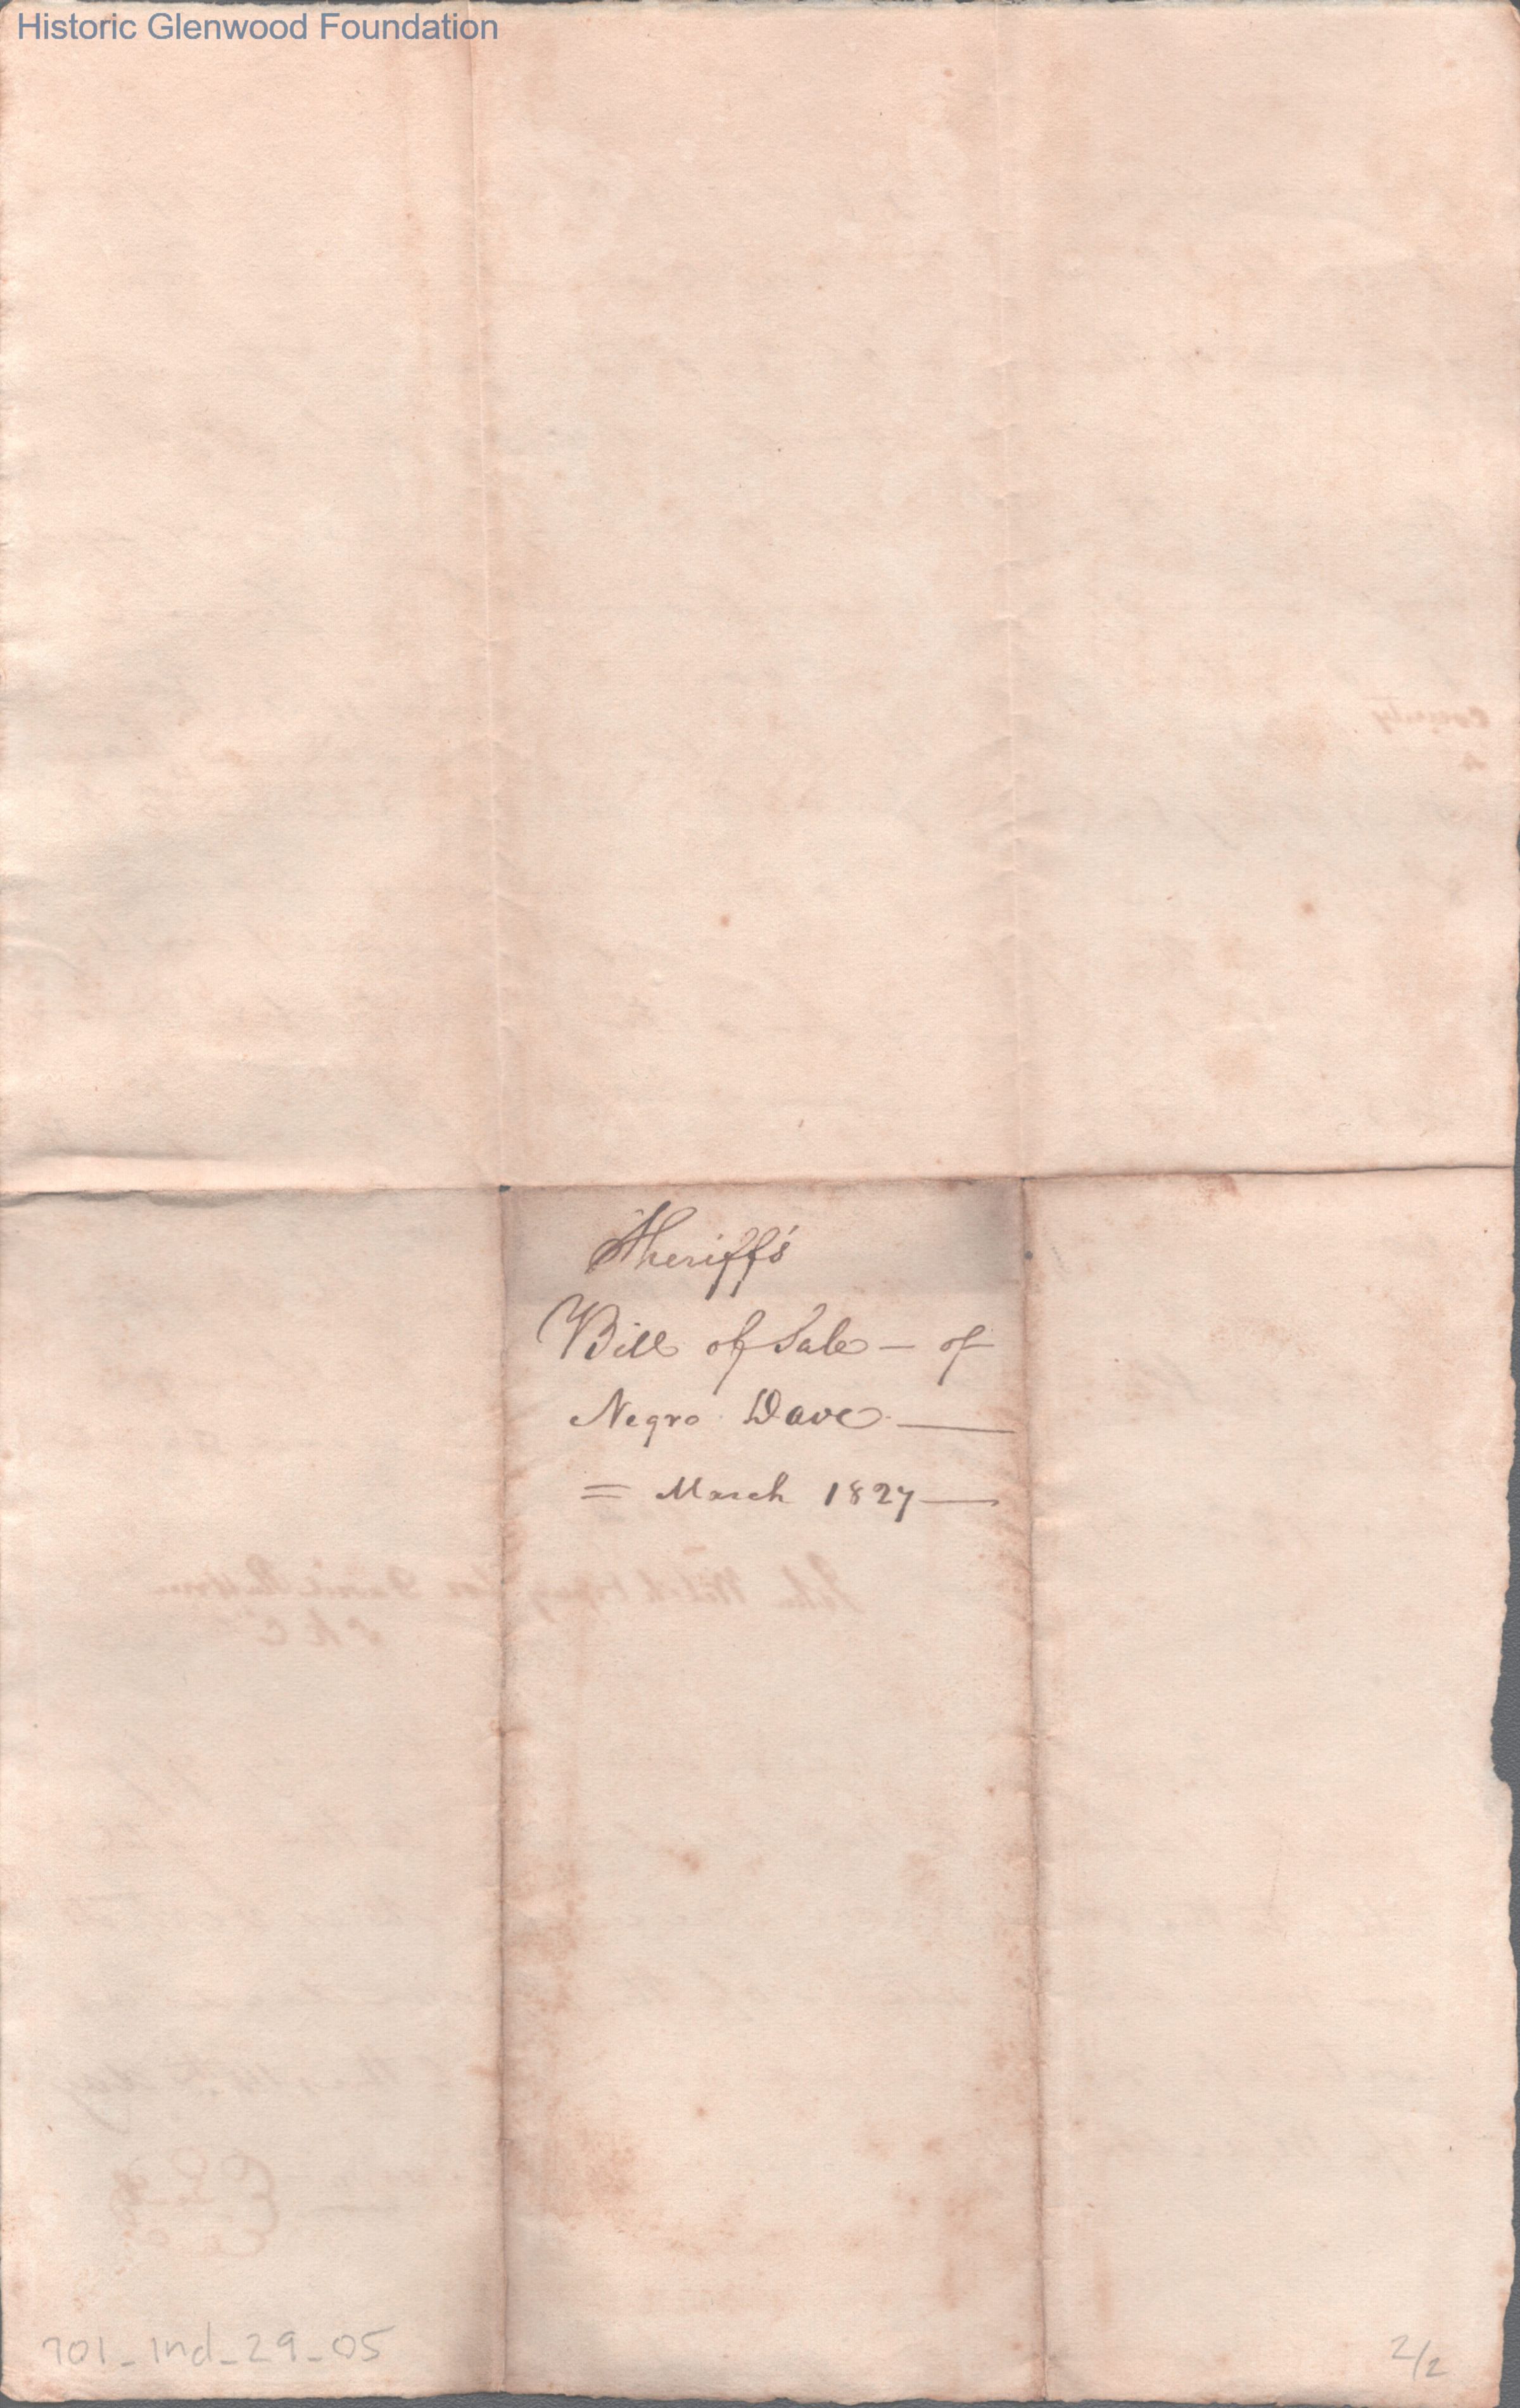 Historic Glenwood Foundation
Sheriff's
Bill of Sale — of
Negro Dave —
= March 1827 —
701_Ind_29_05
2/2